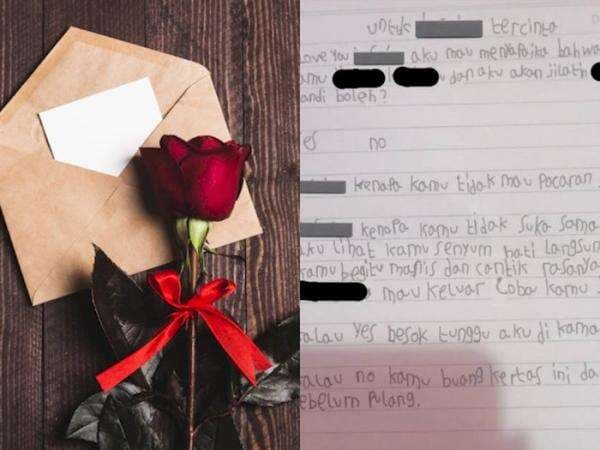 untuk tercinta
ove you aku mau menyapaika bahwa
amu dan aku akan jilath
andi boleh?
es no
kenapa kamu tidak mau pacaran
kenapa kamu tidak suka sama
ku lihat kamu senyum hati langsun
kamu begitu manis dan cantik rasanya
mau keluar coba kamu
alau yes besok tunggu aku di kama
alau no kamu buang kertas ini da
ebelum pulang.